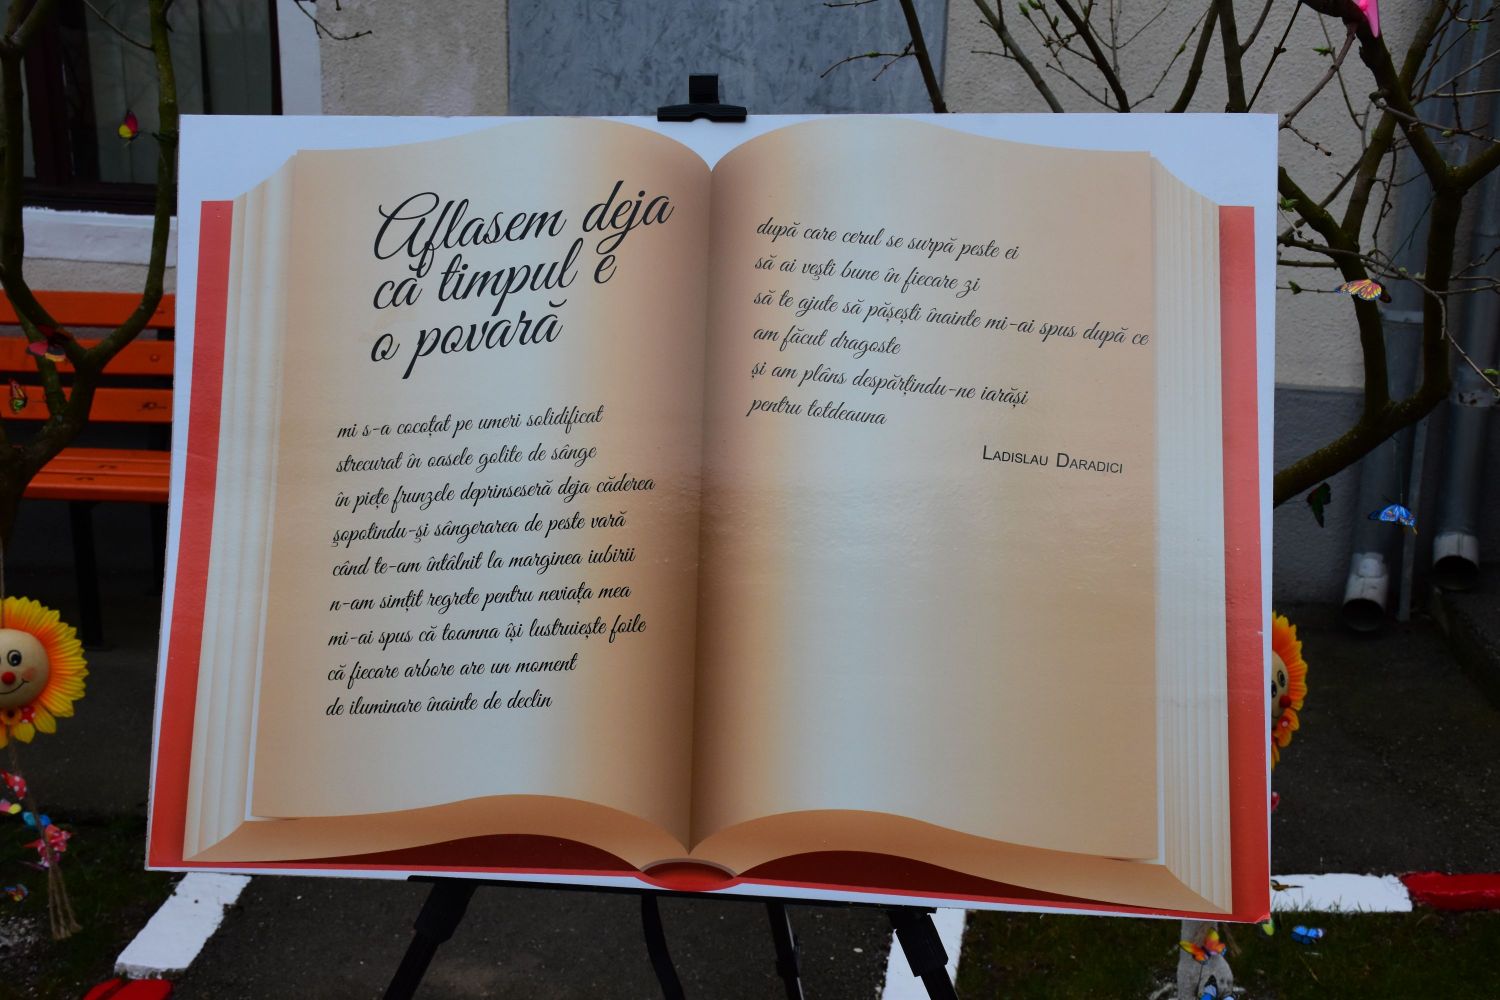 Aflasem deja
că timpul e
o povară
mi s-a cocoțat pe umeri solidificat
strecurat în oasele golite de sânge
în piețe frunzele deprinseseră deja căderea
şopotindu-şi sângerarea de peste vară
când te-am întâlnit la marginea iubirii
n-am simțit regrete pentru neviața mea
mi-ai spus că toamna își lustruiește foile
că fiecare arbore are un moment
de iluminare înainte de declin
după care cerul se surpă peste ei
să ai veşti bune în fiecare zi
să te ajute să pășești înainte mi-ai spus după ce
am făcut dragoste
și am plâns despărțindu-ne iarăși
pentru totdeauna
Ladislau Daradici